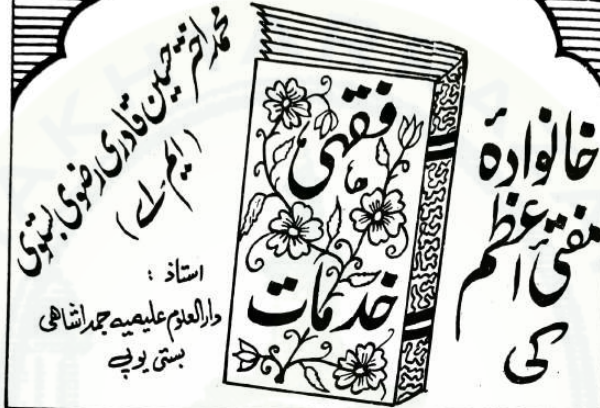 خانوادۂ
مفتیٔ اعظم
کی
فقہی
خدمات
محمد اختر حسین قادری رضوی بستوی
(ایم اے)
استاذ :
دارالعلوم علیمیہ جمداشاہی
بستی یوپی